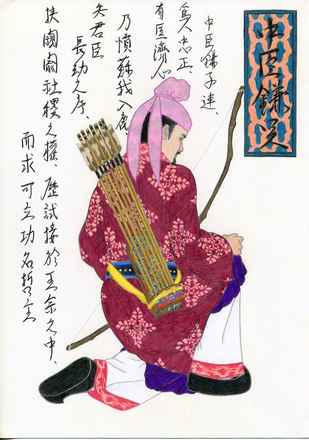 中臣鎌足
中臣鎌子連、
為人忠正、
有匡濟心
乃憤蘇我入鹿
失君臣
長幼之序、
挾𨶳𨵦社稷之權、歷試接於王宗之中、
而求可立功名哲主